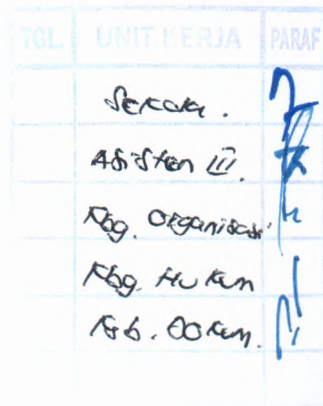 TGL. UNIT KERJA PARAF
Sekda.
Asisten III.
Kbg. Organisasi
Kbg. Hukum
Ksb. DOKum.